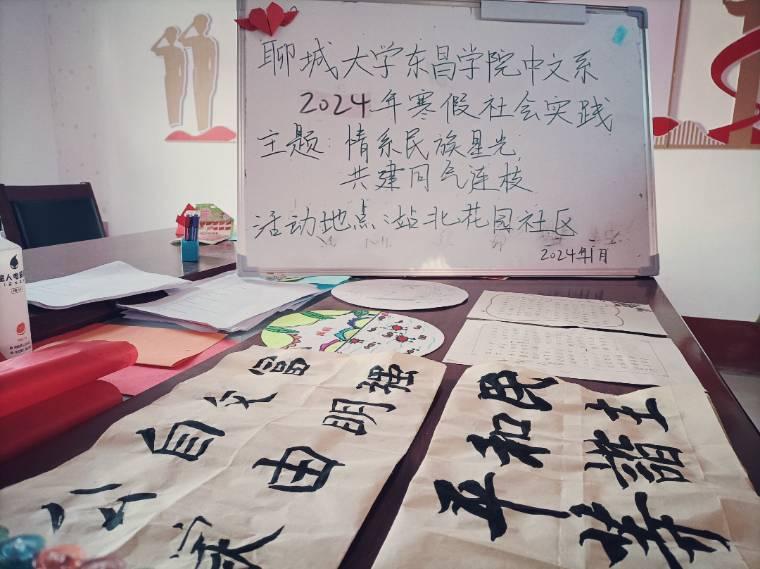 聊城大学东昌学院中文系
2024年寒假社会实践
主题:情系民族星光,
共建同气连枝
活动地点:站北花园社区
2024年1月
富强
文明
自由
民主
和谐
平等